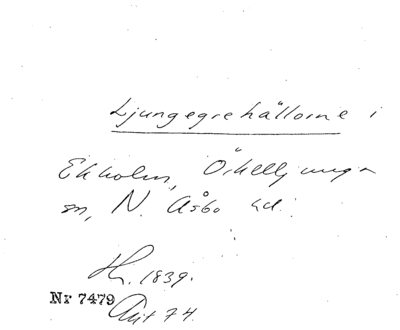 Ljungegrehållorne i
Ekholm, Örkelljunga
sn, N. Åsbo hd.
Hr. 1839.
Nr 7479
Akt 74.